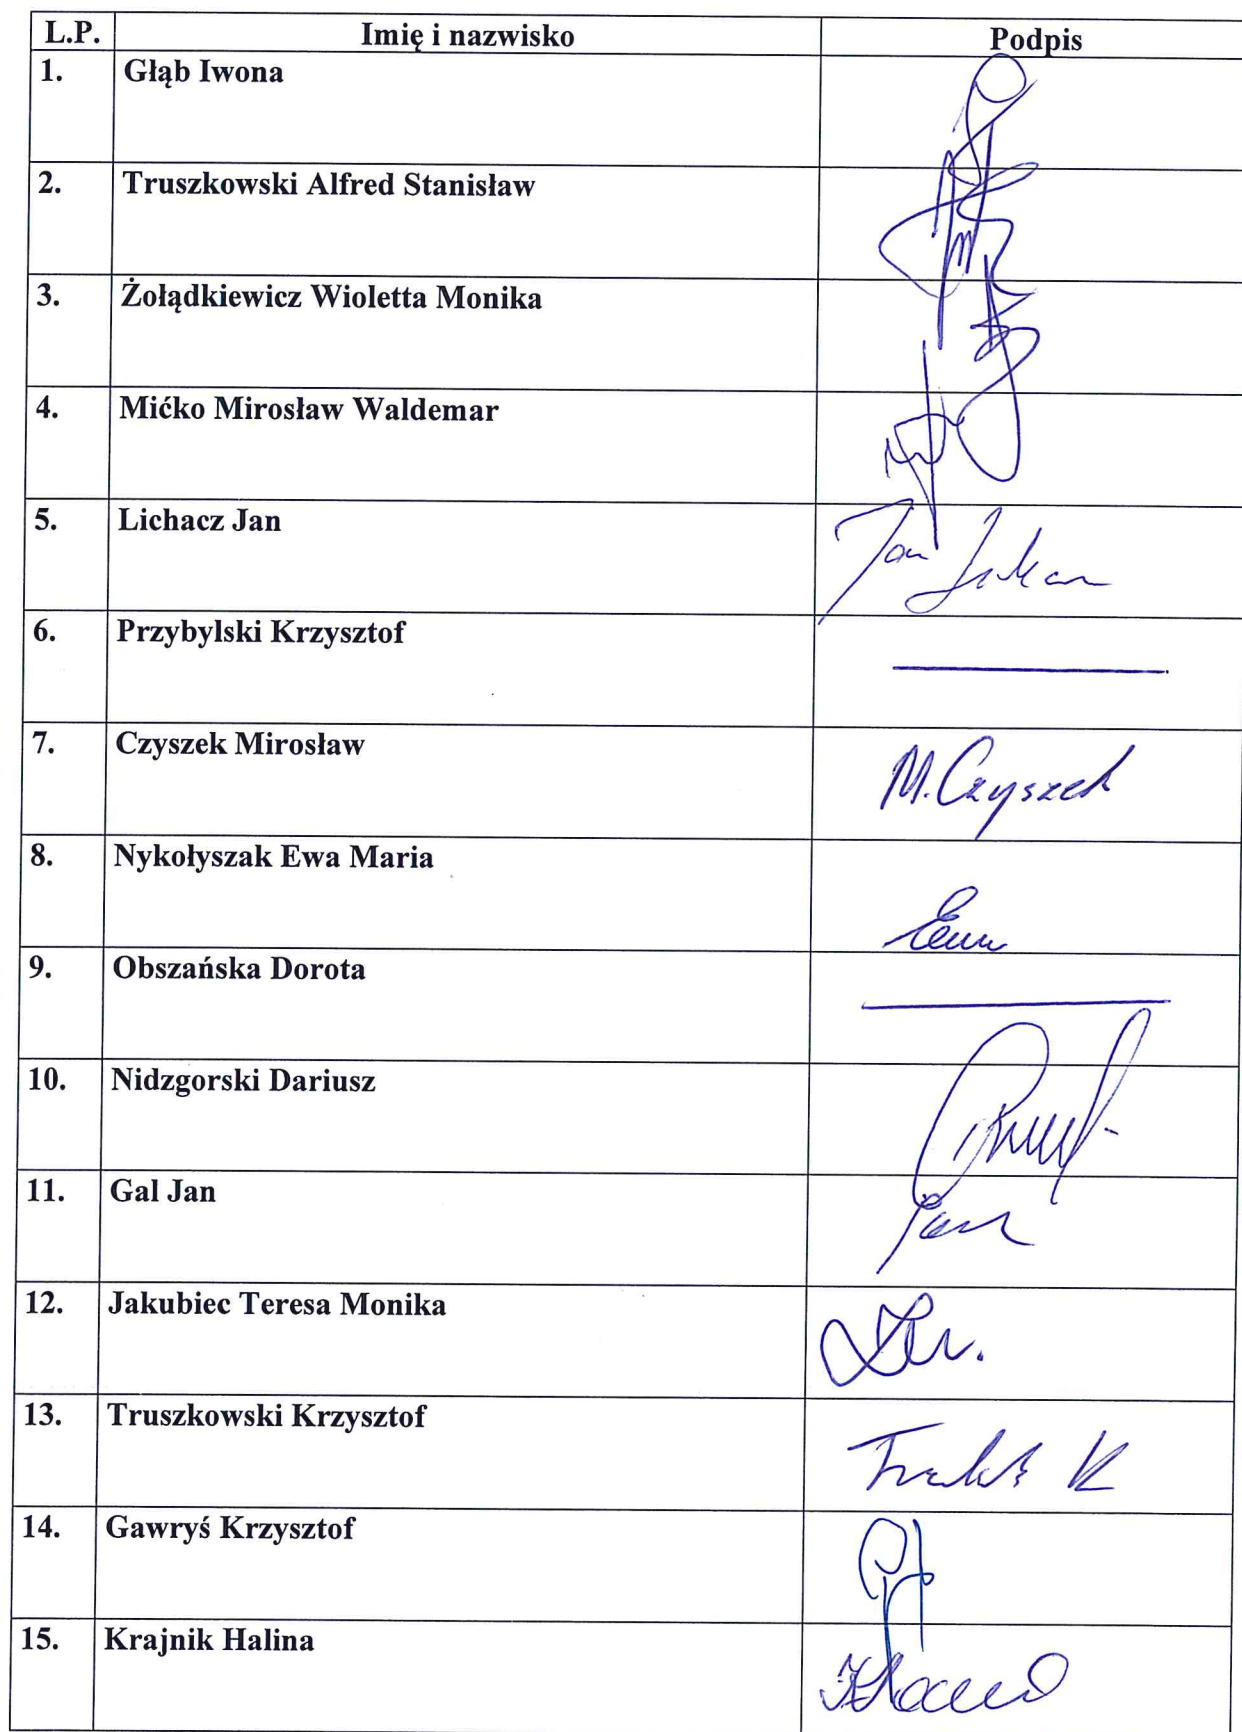 L.P. Imię i nazwisko Podpis
1. Głąb Iwona
2. Truszkowski Alfred Stanisław
3. Żołądkiewicz Wioletta Monika
4. Mićko Mirosław Waldemar
5. Lichacz Jan Jan
6. Przybylski Krzysztof
7. Czyszek Mirosław M. Czyszek
8. Nykołyszak Ewa Maria Ewa
9. Obszańska Dorota
10. Nidzgorski Dariusz
11. Gal Jan
12. Jakubiec Teresa Monika
13. Truszkowski Krzysztof
14. Gawryś Krzysztof
15. Krajnik Halina